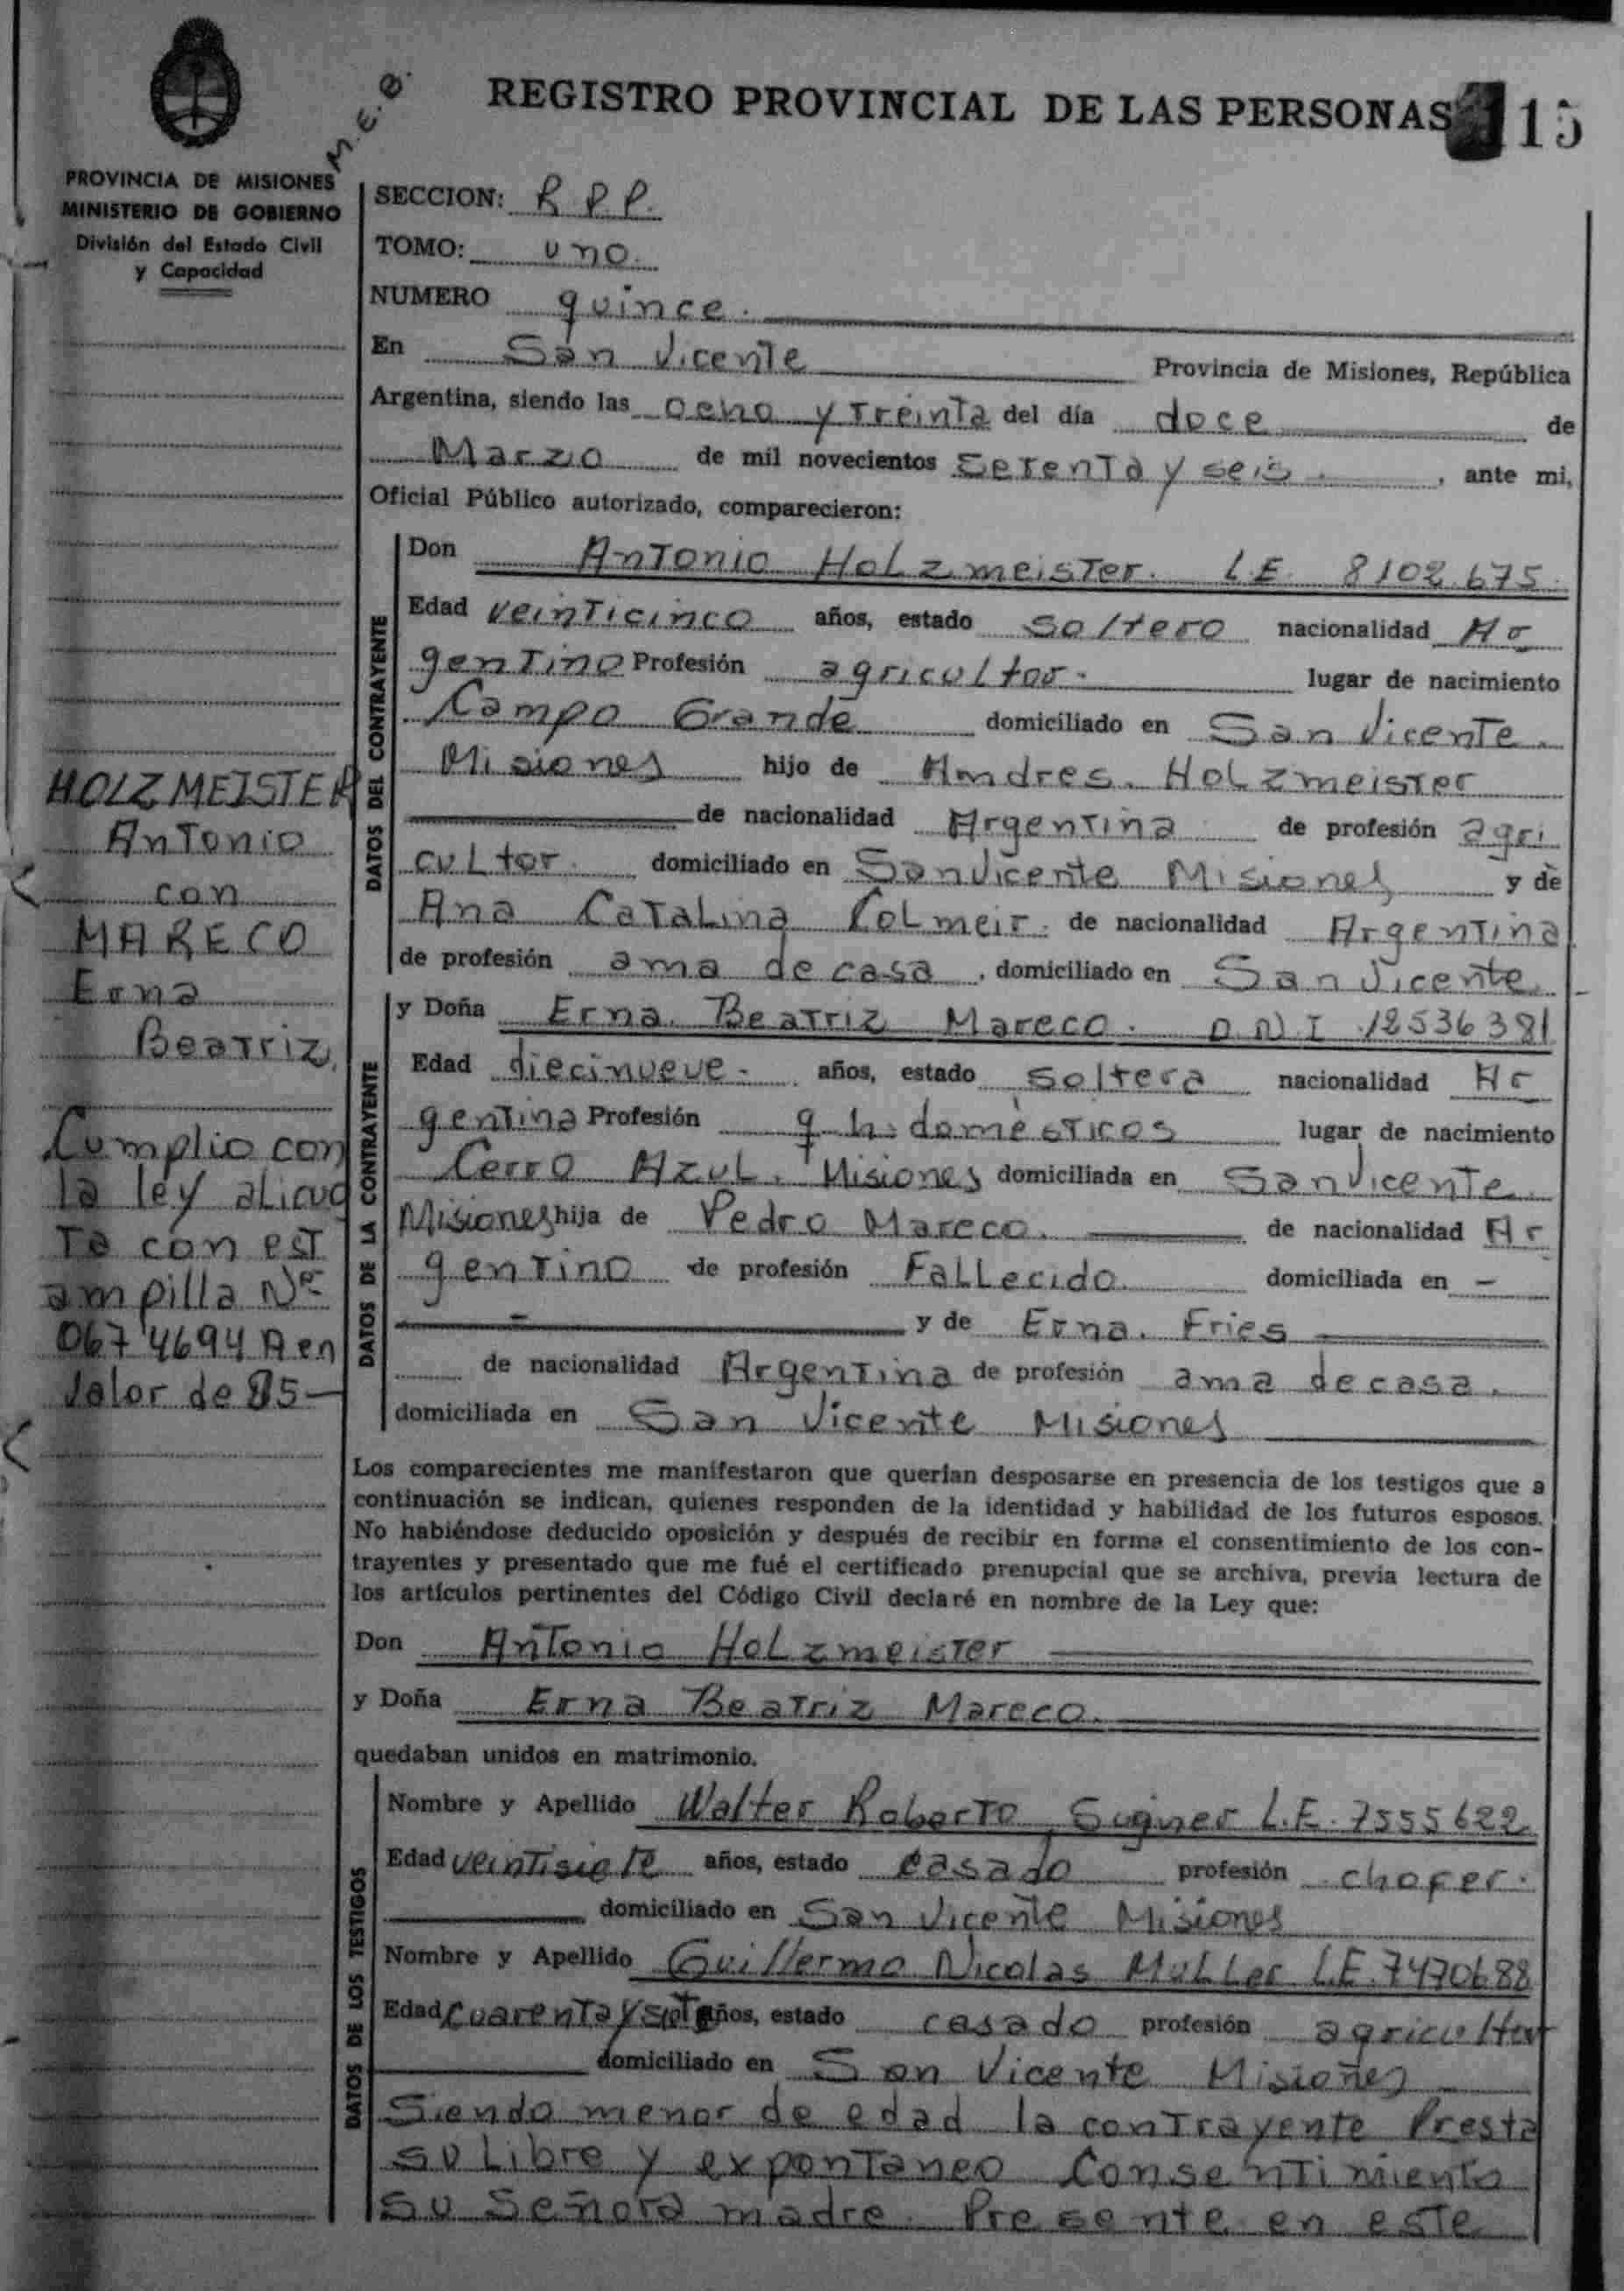 M.E.B.
REGISTRO PROVINCIAL DE LAS PERSONAS 15
PROVINCIA DE MISIONES
MINISTERIO DE GOBIERNO
División del Estado Civil
y Capacidad
SECCION: R P P.
TOMO: uno.
NUMERO quince.
En San Vicente Provincia de Misiones, República
Argentina, siendo las ocho y treinta del día doce de
Marzo de mil novecientos setenta y seis. , ante mi,
Oficial Público autorizado, comparecieron:
DATOS DEL CONTRAYENTE
Don Antonio Holzmeister. L.E. 8102.675.
Edad veinticinco años, estado soltero nacionalidad Ar
gentino Profesión agricultor. lugar de nacimiento
Campo Grande domiciliado en San Vicente.
Misiones hijo de Andres. Holzmeister
de nacionalidad Argentina de profesión agri
cultor. domiciliado en San Vicente Misiones y de
Ana Catalina Colmeir. de nacionalidad Argentina
de profesión ama de casa , domiciliado en San Vicente.
DATOS DE LA CONTRAYENTE
y Doña Erna. Beatriz Mareco. D.N.I. 12536381
Edad diecinueve. años, estado soltera nacionalidad Ar
gentina Profesión q. h. domésticos lugar de nacimiento
Cerro Azul. Misiones domiciliada en San Vicente.
Misiones hija de Pedro Mareco. de nacionalidad Ar
gentino de profesión Fallecido. domiciliada en –
– y de Erna. Fries
de nacionalidad Argentina de profesión ama de casa.
domiciliada en San Vicente Misiones
HOLZMEISTER
Antonio
con
MARECO
Erna
Beatriz.
Cumplio con
la ley alicuo
ta con est
ampilla Nº
0674694 A en
valor de 85–
Los comparecientes me manifestaron que querían desposarse en presencia de los testigos que a
continuación se indican, quienes responden de la identidad y habilidad de los futuros esposos.
No habiéndose deducido oposición y después de recibir en forma el consentimiento de los con-
trayentes y presentado que me fué el certificado prenupcial que se archiva, previa lectura de
los artículos pertinentes del Código Civil declaré en nombre de la Ley que:
Don Antonio Holzmeister
y Doña Erna Beatriz Mareco.
quedaban unidos en matrimonio.
DATOS DE LOS TESTIGOS
Nombre y Apellido Walter Roberto L.E. 7555622
Edad veintisiete años, estado casado profesión chofer.
domiciliado en San Vicente Misiones
Nombre y Apellido Guillermo Nicolas Muller L.E. 7470688
Edad cuarenta y siete años, estado casado profesión agricultor
domiciliado en San Vicente Misiones
Siendo menor de edad la contrayente Presta
su Libre y expontaneo Consentimiento
su Señora madre. Presente en este